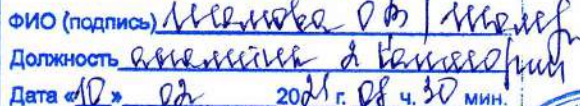 ФИО (подпись) Шалова О В
Должность аналитик 2 категории
Дата «10» 02 2021 г. 08 ч. 30 мин.